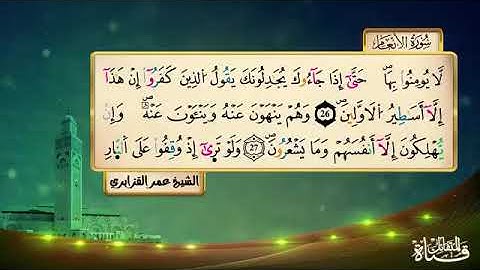 سُورَةُ الأَنْعَامِ
لَّا يُومِنُوا۟ بِهَا حَتَّىٰٓ إِذَا جَآءُوكَ يُجَـٰدِلُونَكَ يَقُولُ اُ۬لذِينَ كَفَرُوٓا۟ إِنْ هَـٰذَآ
إِلَّآ أَسَـٰطِيرُ اُ۬لَاوَّلِينَۖ 26 وَهُمْ يَنْهَوْنَ عَنْهُ وَيَنْـَٔوْنَ عَنْهُۖ وَإِنْ
يُّهْلِكُونَ إِلَّآ أَنفُسَهُمْ وَمَا يَشْعُرُونَۖ 27 وَلَوْ تَر۪ىٰٓ إِذْ وُقِفُوا۟ عَلَى اَ۬لنّ۪ارِ
الشيخ عمر القزابري
قناة المتقاين